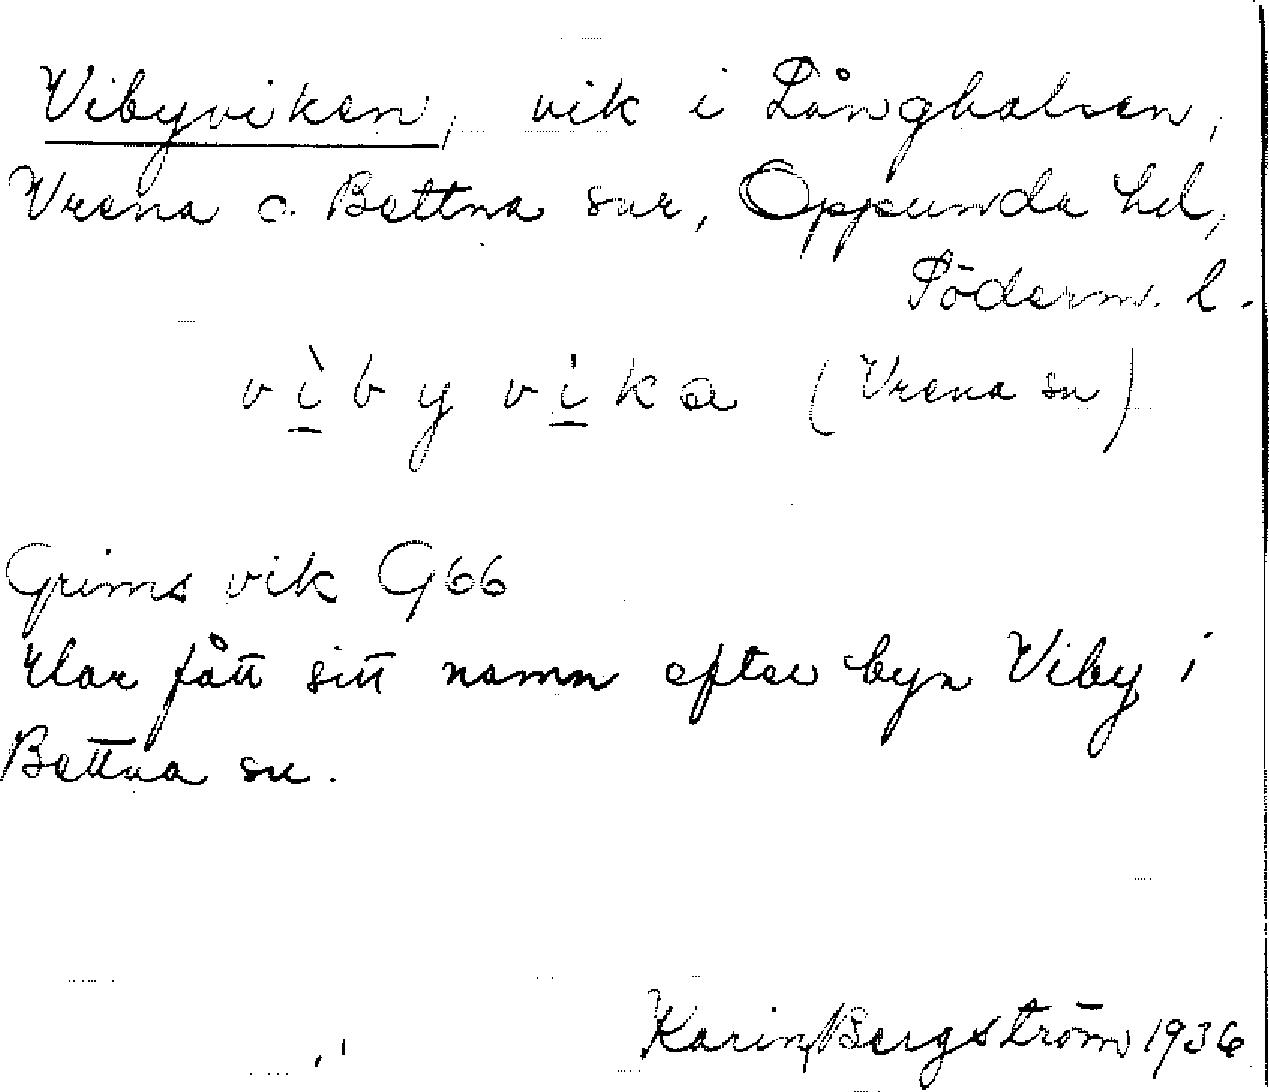 Vibyviken, vik i Långhalsen,
Vrena o. Bettna snr, Oppunda hd,
Söderm. l.
vìby vika (Vrena sn)
Grims vik G66
Har fått sitt namn efter byn Viby i
Bettna sn.
Karin Bergström 1936